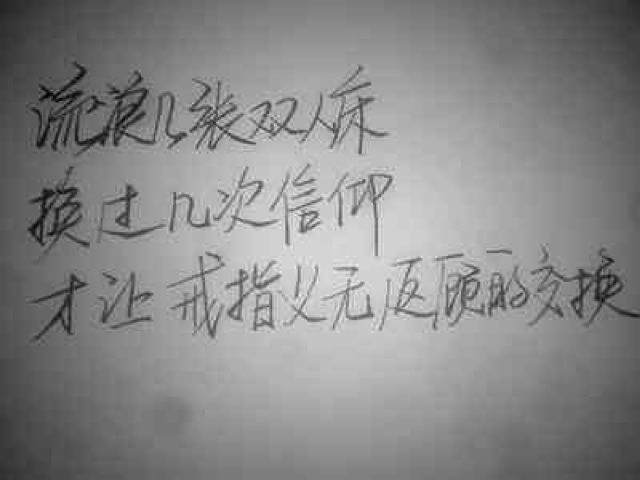 流浪几张双人床
换过几次信仰
才让戒指义无返顾的交换